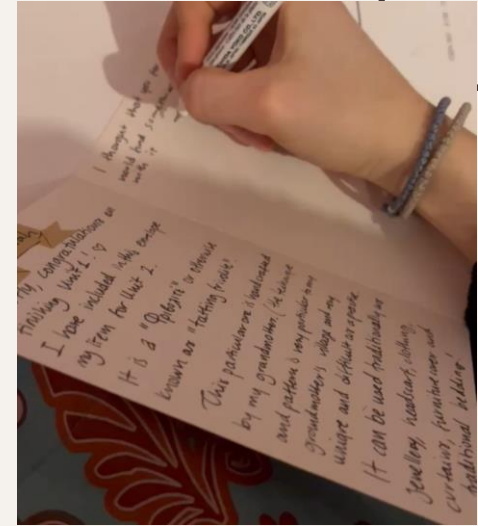 congratulations on
finishing Unit 1! ♡
I have included in this envelope
my item for Unit 2.
It is a "    " or otherwise
known as "tatting bicable"
This particular one is handcrafted
by my grandmother (the technique
and pattern is very particular to my
grandmother's village and very
unique and difficult as a profile
It can be used traditionally as
jewellery, headscarf, clothing,
curtains, furniture cover and
traditional bedding!
I thought that you too
would find something
with it